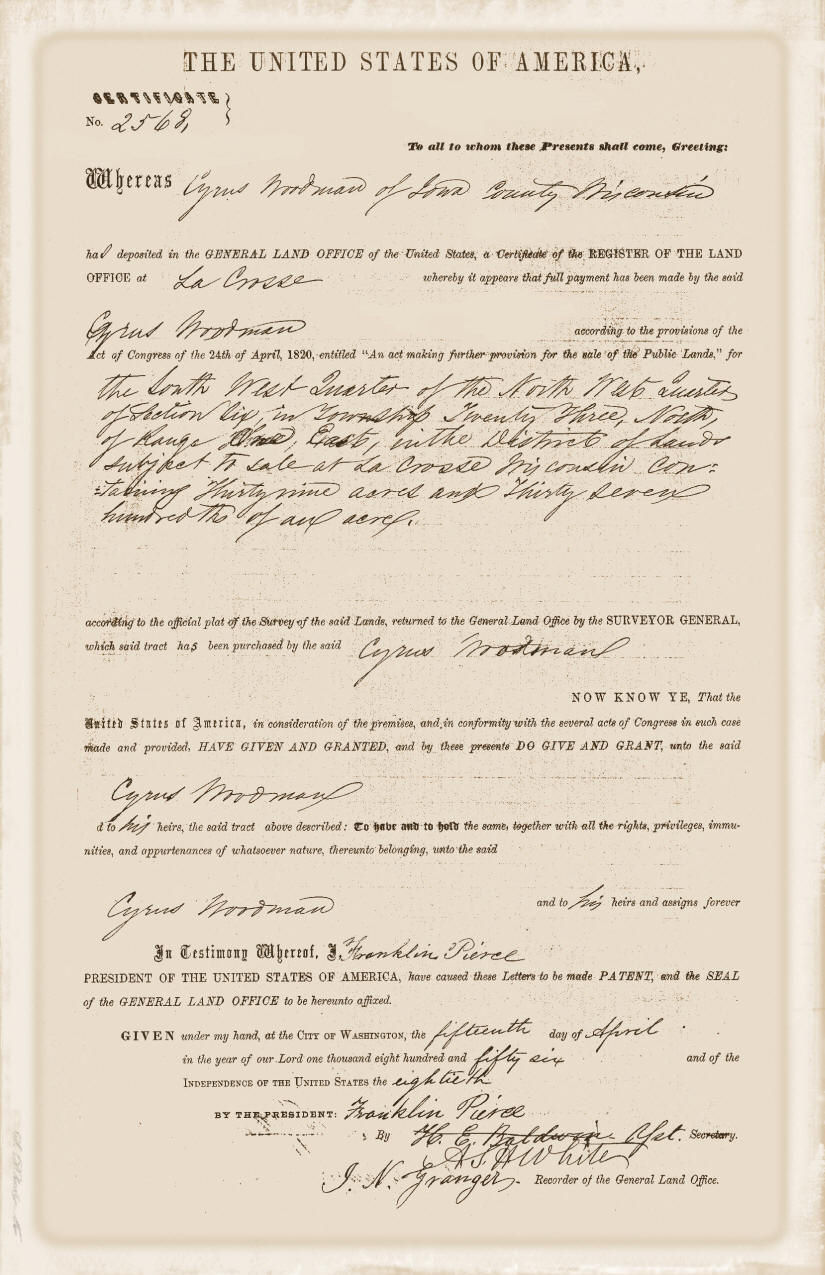 THE UNITED STATES OF AMERICA,
CERTIFICATE
No. 2568,
To all to whom these Presents shall come, Greeting:
Whereas Cyrus Woodman of Iowa County Wisconsin
has deposited in the GENERAL LAND OFFICE of the United States, a Certificate of the REGISTER OF THE LAND
OFFICE at La Crosse whereby it appears that full payment has been made by the said
Cyrus Woodman according to the provisions of the
Act of Congress of the 24th of April, 1820, entitled “An act making further provision for the sale of the Public Lands,” for
the South West Quarter of the North West Quarter
of Section Six, in Township Twenty Three, North,
of Range One, East, in the District of Lands
subject to sale at La Crosse Wisconsin Con-
=taining Thirty nine acres and Thirty seven
hundredths of an acre.
according to the official plat of the Survey of the said Lands, returned to the General Land Office by the SURVEYOR GENERAL,
which said tract has been purchased by the said Cyrus Woodman
NOW KNOW YE, That the
United States of America, in consideration of the premises, and in conformity with the several acts of Congress in such case
made and provided, HAVE GIVEN AND GRANTED, and by these presents DO GIVE AND GRANT, unto the said
Cyrus Woodman
d to his heirs, the said tract above described: To have and to hold the same, together with all the rights, privileges, immu-
nities, and appurtenances of whatsoever nature, thereunto belonging, unto the said
Cyrus Woodman and to his heirs and assigns forever
In Testimony Whereof, I, Franklin Pierce
PRESIDENT OF THE UNITED STATES OF AMERICA, have caused these Letters to be made PATENT, and the SEAL
of the GENERAL LAND OFFICE to be hereunto affixed.
GIVEN under my hand, at the CITY OF WASHINGTON, the fifteenth day of April
in the year of our Lord one thousand eight hundred and fifty six and of the
INDEPENDENCE OF THE UNITED STATES the eightieth
BY THE PRESIDENT: Franklin Pierce
By H. E. Baldwin Asst. Secretary.
J. N. Granger Recorder of the General Land Office.